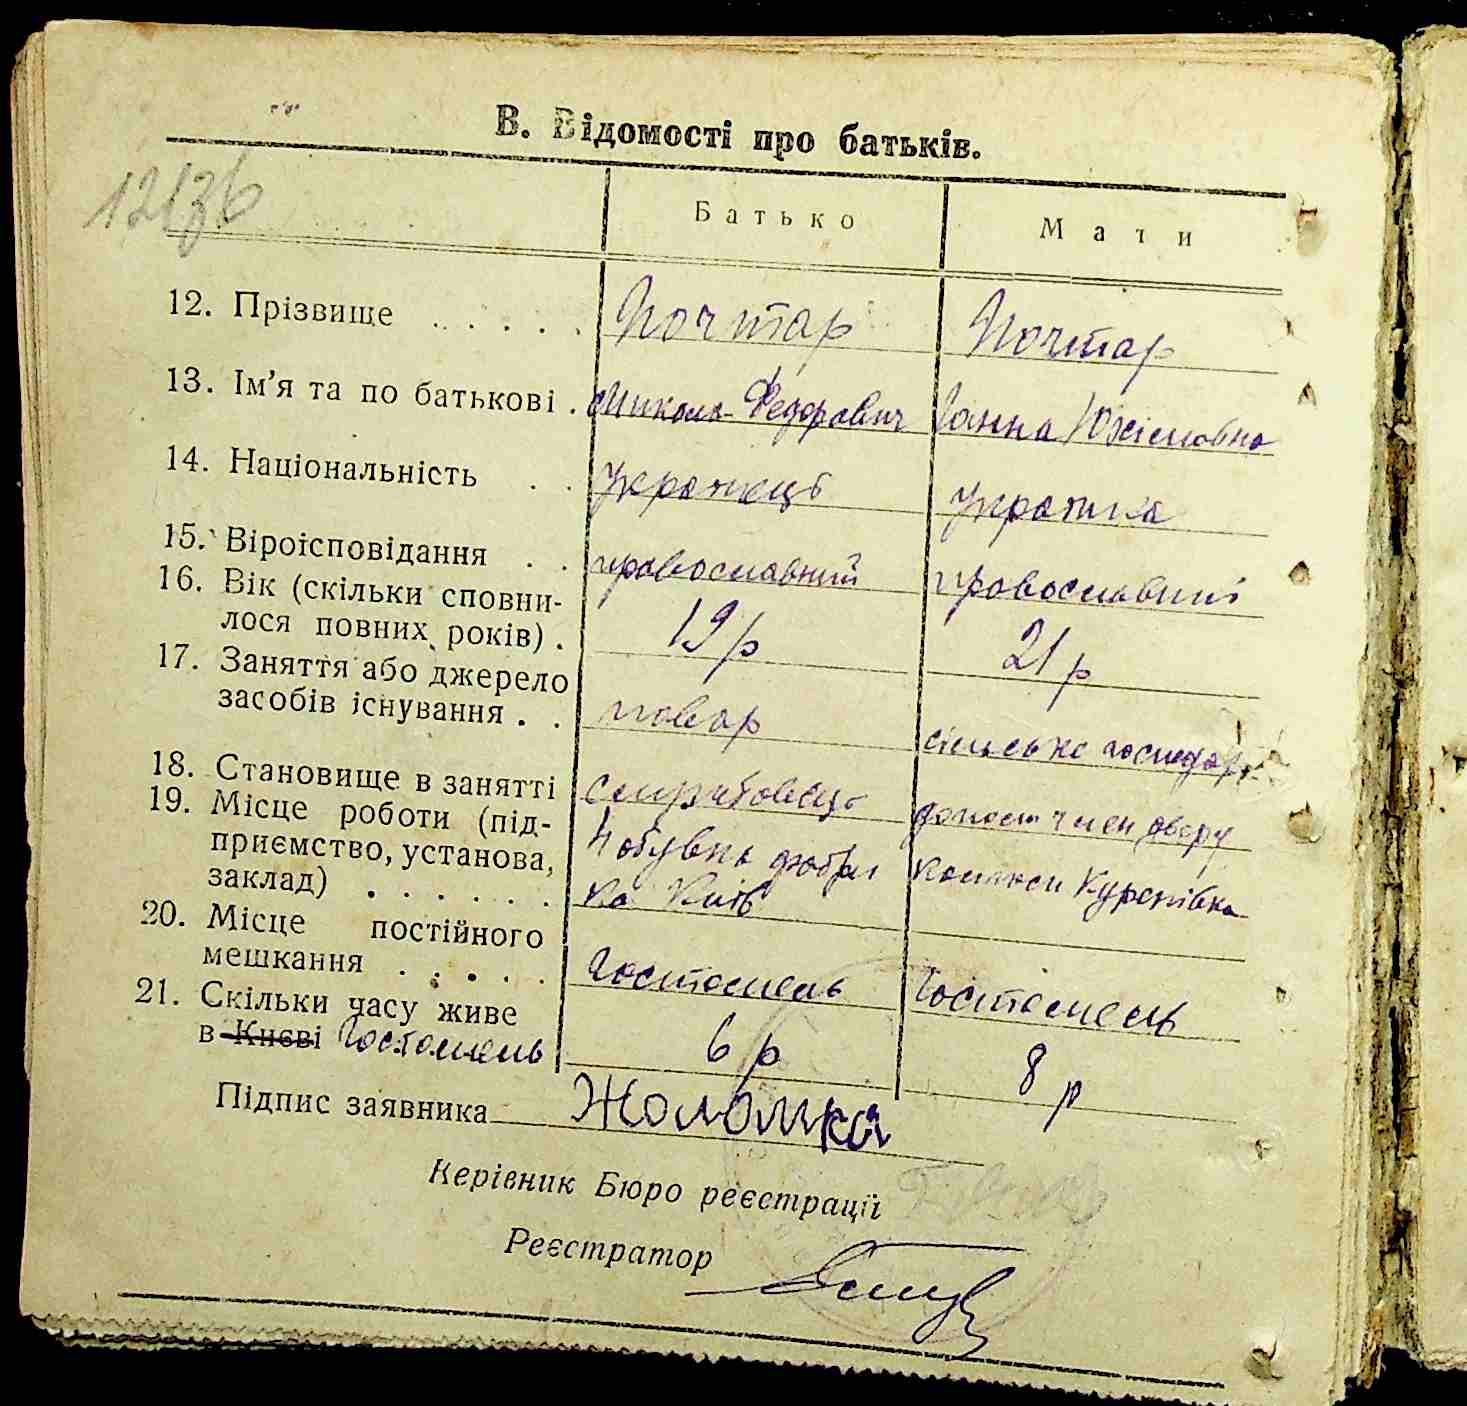 В. Відомості про батьків.
12/36
Батько Мати
12. Прізвище . . . . . Почтар Почтар
13. Ім’я та по батькові . Микола Федорович Ганна Юхімовна
14. Національність . . Українець Українка
15. Віроісповідання . . православний православний
16. Вік (скільки сповни-
лося повних років) . 19 р 21 р
17. Заняття або джерело
засобів існування . . повар сільське господар
18. Становище в занятті член двору
19. Місце роботи (під-
приємство, установа,
заклад) . . . . . . ка Київ Куренівка
20. Місце постійного
мешкання . . . . . Гостомель Гостомель
21. Скільки часу живе
в Києві Гостомель 6 р 8 р
Підпис заявника Жоломка
Керівник Бюро реєстрації
Реєстратор